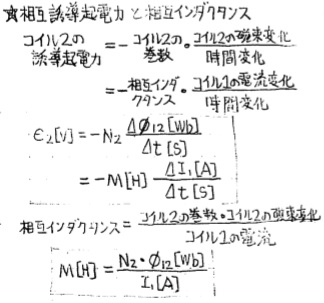 ☆相互誘導起電力と相互インダクタンス
コイル2の誘導起電力 = -コイル2の巻数・コイル2の磁束変化/時間変化
= -相互インダクタンス・コイル1の電流変化/時間変化
e₂[V] = -N₂ ΔΦ₁₂[Wb]/Δt[S]
= -M[H] ΔI₁[A]/Δt[S]
相互インダクタンス = コイル2の巻数・コイル2の磁束変化/コイル1の電流
M[H] = N₂・Φ₁₂[Wb]/I₁[A]